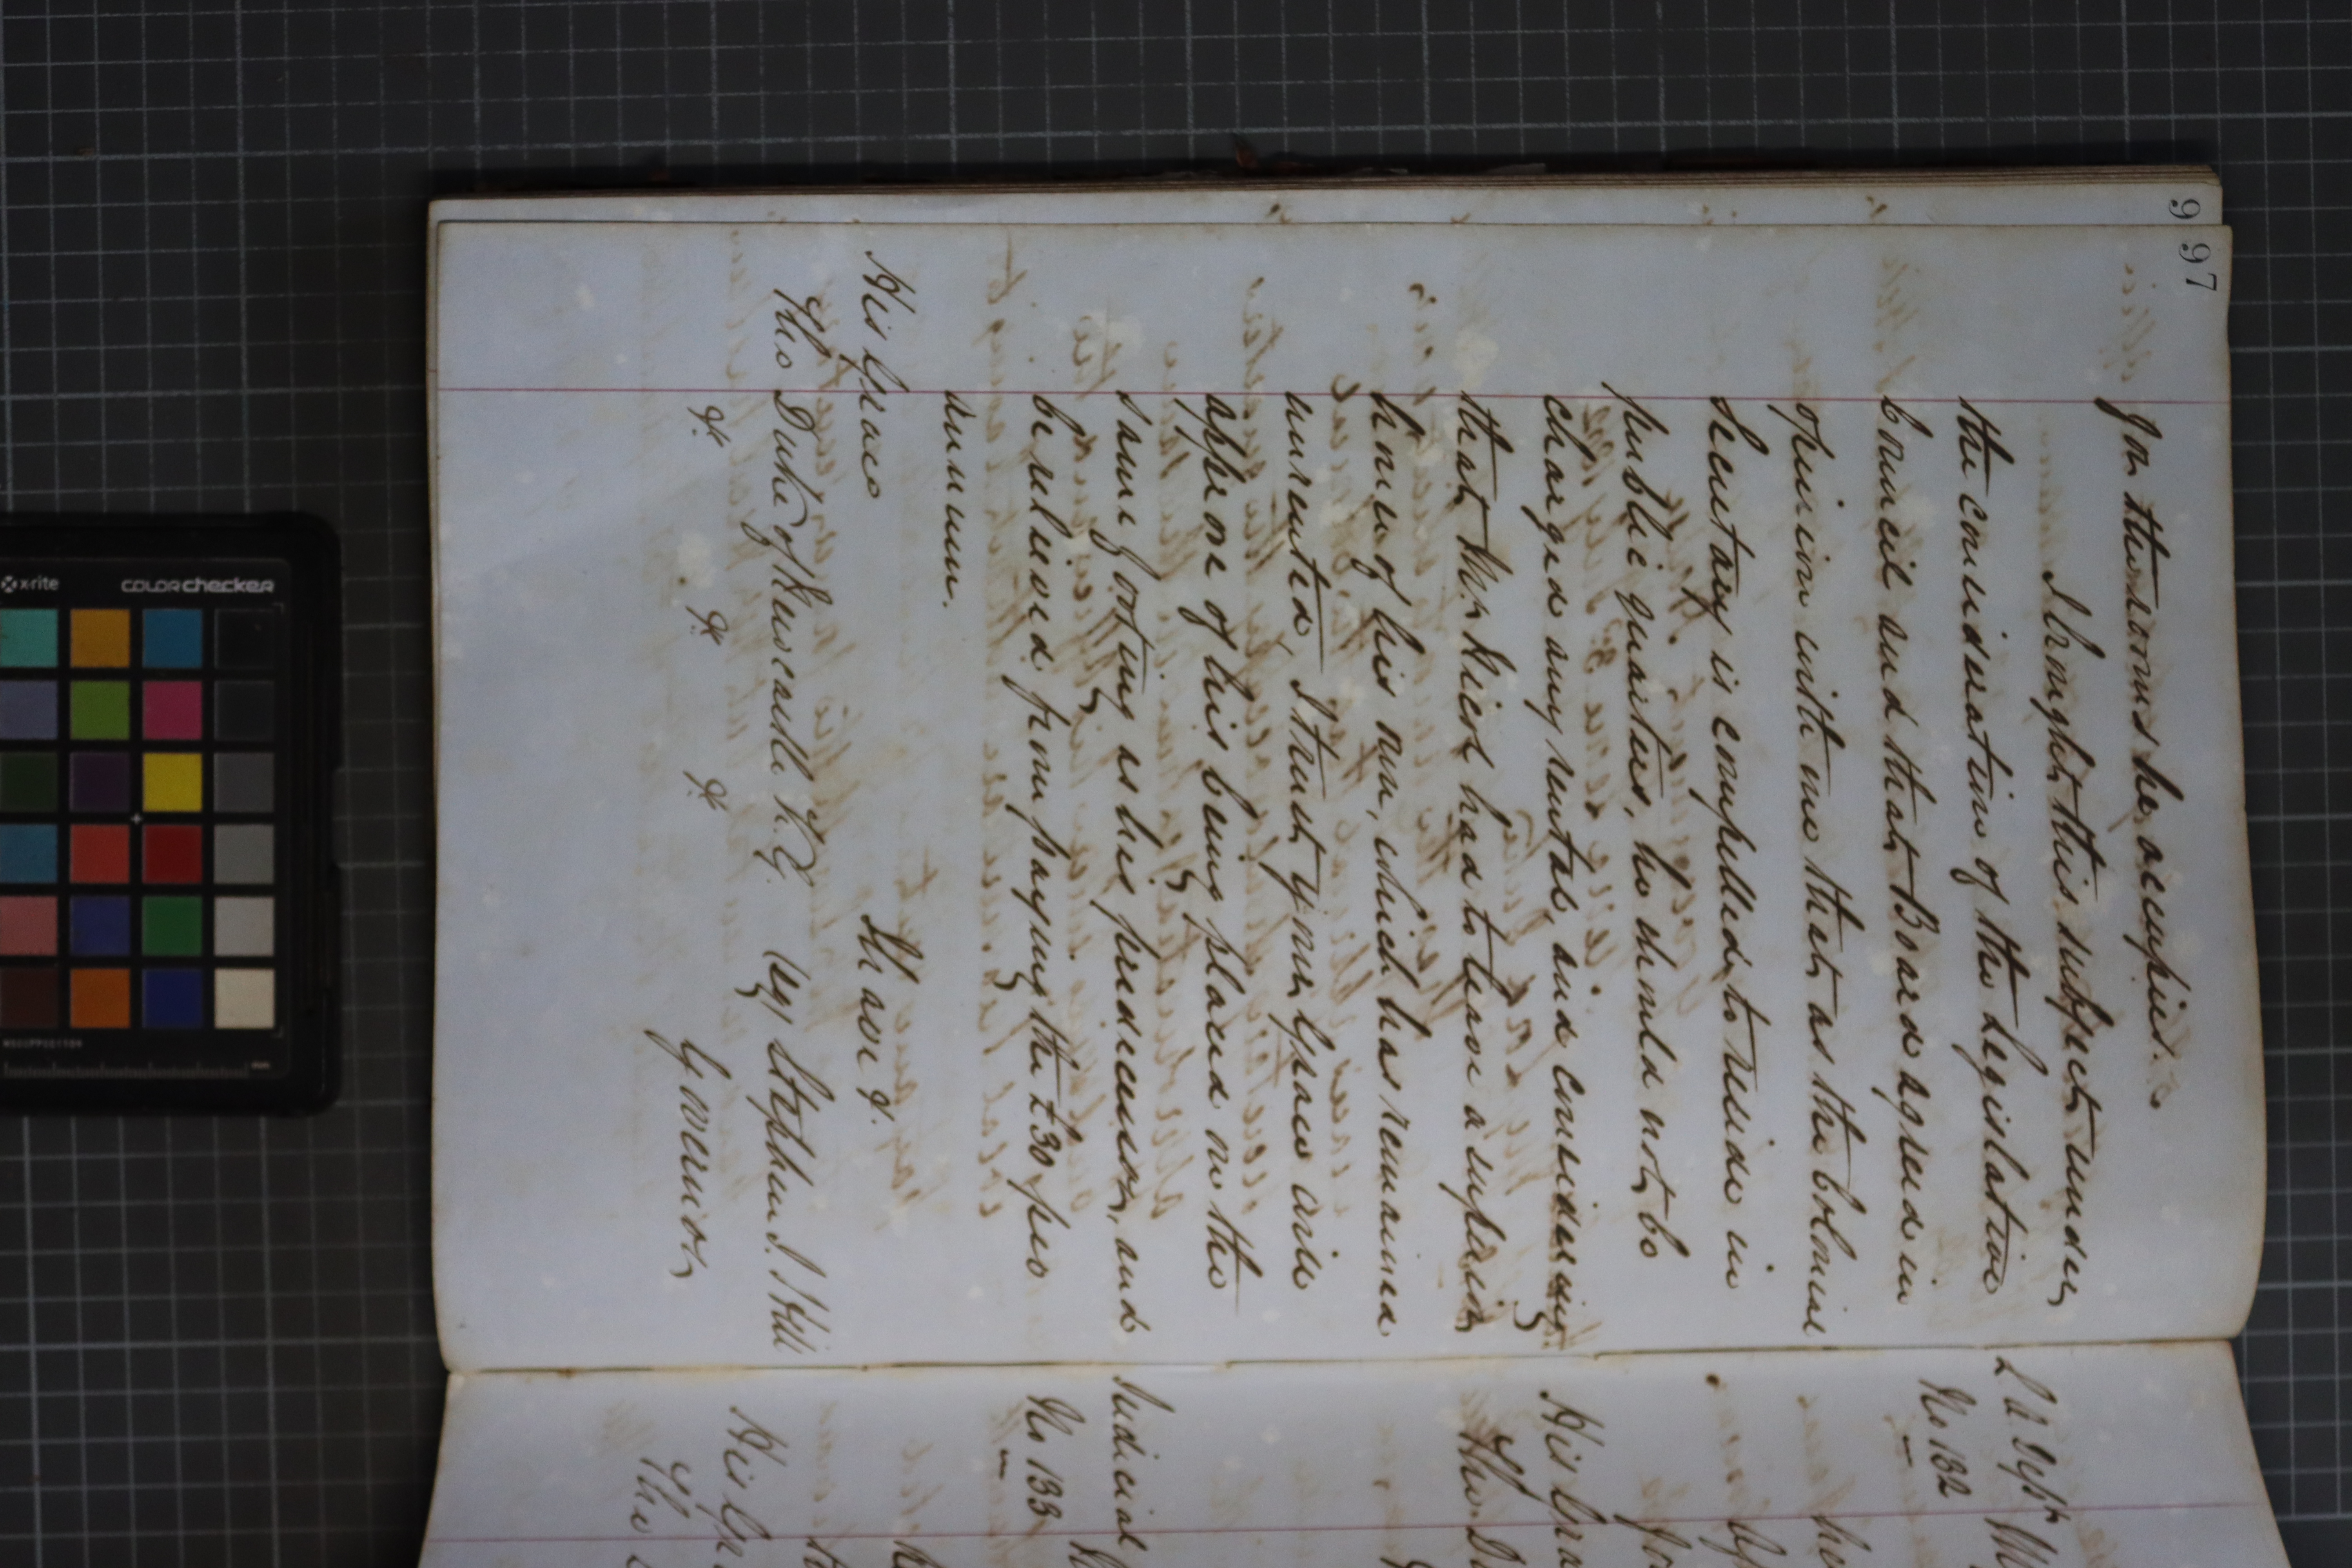 97
for the rooms he occupies.
I brought this subject under
the consideration of the Legislative
Council and that Board agreed in
opinion with me that as the Colonial
Secretary is compelled to reside in
public quarters, he should not be
charged any rental, and considering
that Mr. had to leave a superior
house of his own, which has remained
unrented, I trust Your Grace will
approve of his being placed on the
same footing as his predecessor, and
be relieved from paying the £30 per
annum.
I have &.
His Grace
The Duke of Newcastle K.G.
(sg) Stephen J. Hill
&. &. &.
Governor
9
No 132
His Gra
The D
Judicial
No 133
His Gra
The
x-rite
colorchecker
mm